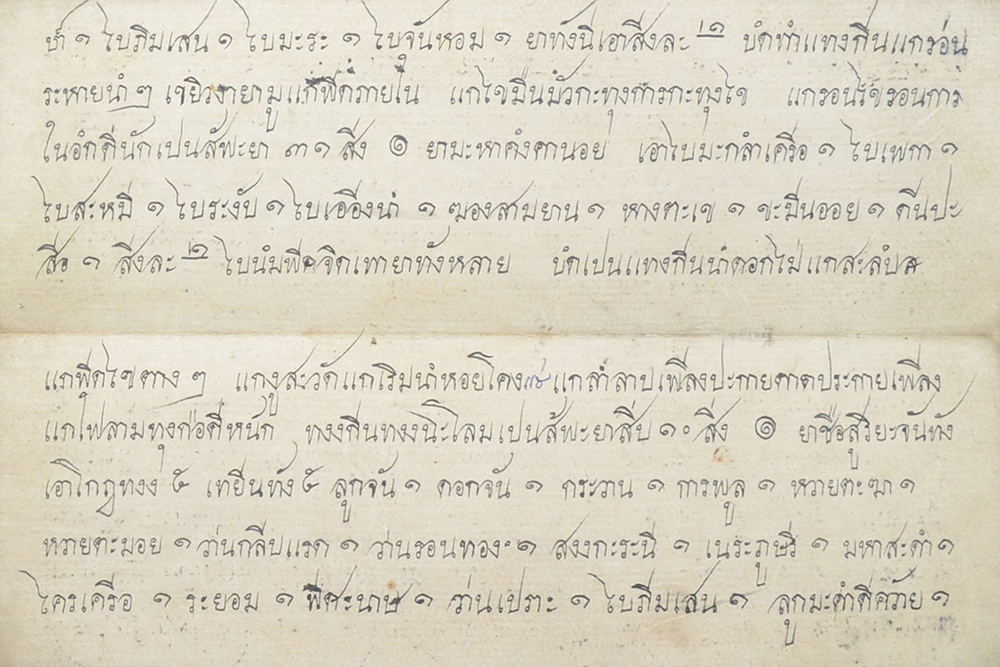 ขา ๑ ใบภิมเสน ๑ ใบมะระ ๑ ใบจันหอม ๑ ยาทังนีเอาสิงละ ๒๑ บดทำแทงกินแกรอน
ระหายนำ ๆ เขยีวงายามูแกพิศภายใน แกไขมินมัวกะทุงการกะทุงไข แกรอนไขรอนการ
ในอกดีนักเปนสัพะยา ๓๑ สิง ๏ ยามะหาคงคานอย เอาใบมะกลำเครือ ๑ ใบเพกา ๑
ใบสะหมี ๑ ใบระงับ ๑ ใบเอืองนำ ๑ ฆองสามยาน ๑ หางตะเข ๑ ขะมินออย ๑ ดีนปะ
สิอ ๑ สิงละ ๒๑ ใบนมพิจิตเทายาทังหลาย บดเปนแทงกินนำดอกไม่แกสะลบ
แกพิศไขตาง ๆ แกงูสะวัดแกเริมนำหอยโคง แกลำลาบเพลิงปะกายดาดประกายเพลิง
แกไฟลามทุงกอดีหนัก ทงงกินทงงนิะโลมเปนสัพะยาสิบ ๑๐ สิง ๏ ยาชือสูริยะจันทัง
เอาโกฎทงง ๕ เทยีนทัง ๕ ลูกจัน ๑ ดอกจัน ๑ กระวาน ๑ การพูล ๑ หวายตะฆา ๑
หวายตะมอย ๑ วานกลีบแรด ๑ วานรอนทอง ๑ สงงกะระนี ๑ เนระภูษี ๑ มหาสะดำ ๑
ไครเครือ ๑ ระยอม ๑ พิศะนาษ ๑ วานเปราะ ๑ ใบภิมเสน ๑ ลูกมะคำดีควาย ๑